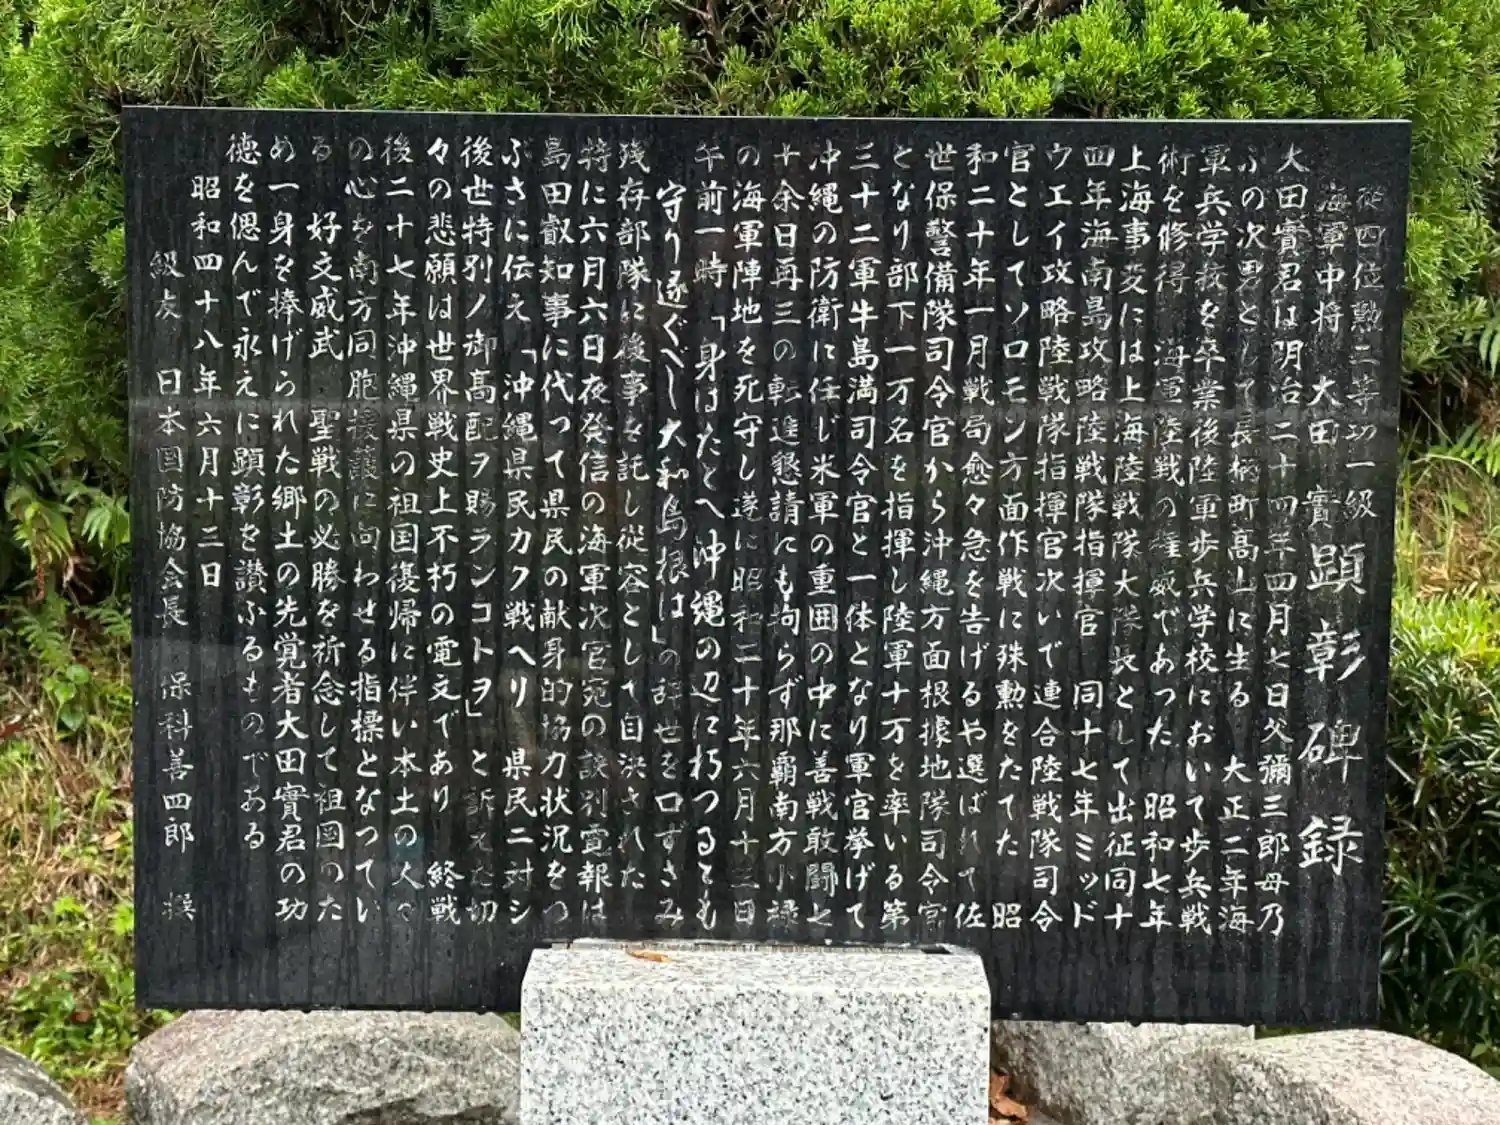 従四位勲二等功一級
海軍中将 大田 實 顕彰碑録
大田實君は明治二十四年四月七日父彌三郎母乃
ふの次男として長柄町高山に生る 大正二年海
軍兵学校を卒業後陸軍歩兵学校において歩兵戦
術を修得 海軍陸戦の権威であつた 昭和七年
上海事変には上海陸戦隊大隊長として出征同十
四年海南島攻略陸戦隊指揮官 同十七年ミッド
ウエイ攻略陸戦隊指揮官次いで連合陸戦隊司令
官としてソロモン方面作戦に殊勲をたてた 昭
和二十年一月戦局愈々急を告げるや選ばれて佐
世保警備隊司令官から沖縄方面根據地隊司令官
となり部下一万名を指揮し陸軍十万を率いる第
三十二軍牛島満司令官と一体となり軍官挙げて
沖縄の防衛に任じ米軍の重囲の中に善戦敢闘七
十余日再三の転進懇請にも拘らず那覇南方小禄
の海軍陣地を死守し遂に昭和二十年六月十三日
午前一時「身はたとへ沖縄の辺に朽つるとも
守り遂ぐべし大和島根は」の辞世を口ずさみ
残存部隊に後事を託し従容として自決された
特に六月六日夜発信の海軍次官宛の訣別電報は
島田叡知事に代つて県民の献身的協力状況をつ
ぶさに伝え「沖縄県民カク戦ヘリ 県民ニ対シ
後世特別ノ御高配ヲ賜ランコトヲ」と訴えた切
々の悲願は世界戦史上不朽の電文であり 終戦
後二十七年沖縄県の祖国復帰に伴い本土の人々
の心を南方同胞援護に向わせる指標となつてい
る 好文威武 聖戦の必勝を祈念して祖国のた
め一身を捧げられた郷土の先覚者大田實君の功
徳を偲んで永えに顕彰を讃ふるものである
昭和四十八年六月十三日
級友 日本国防協会長 保科善四郎 撰